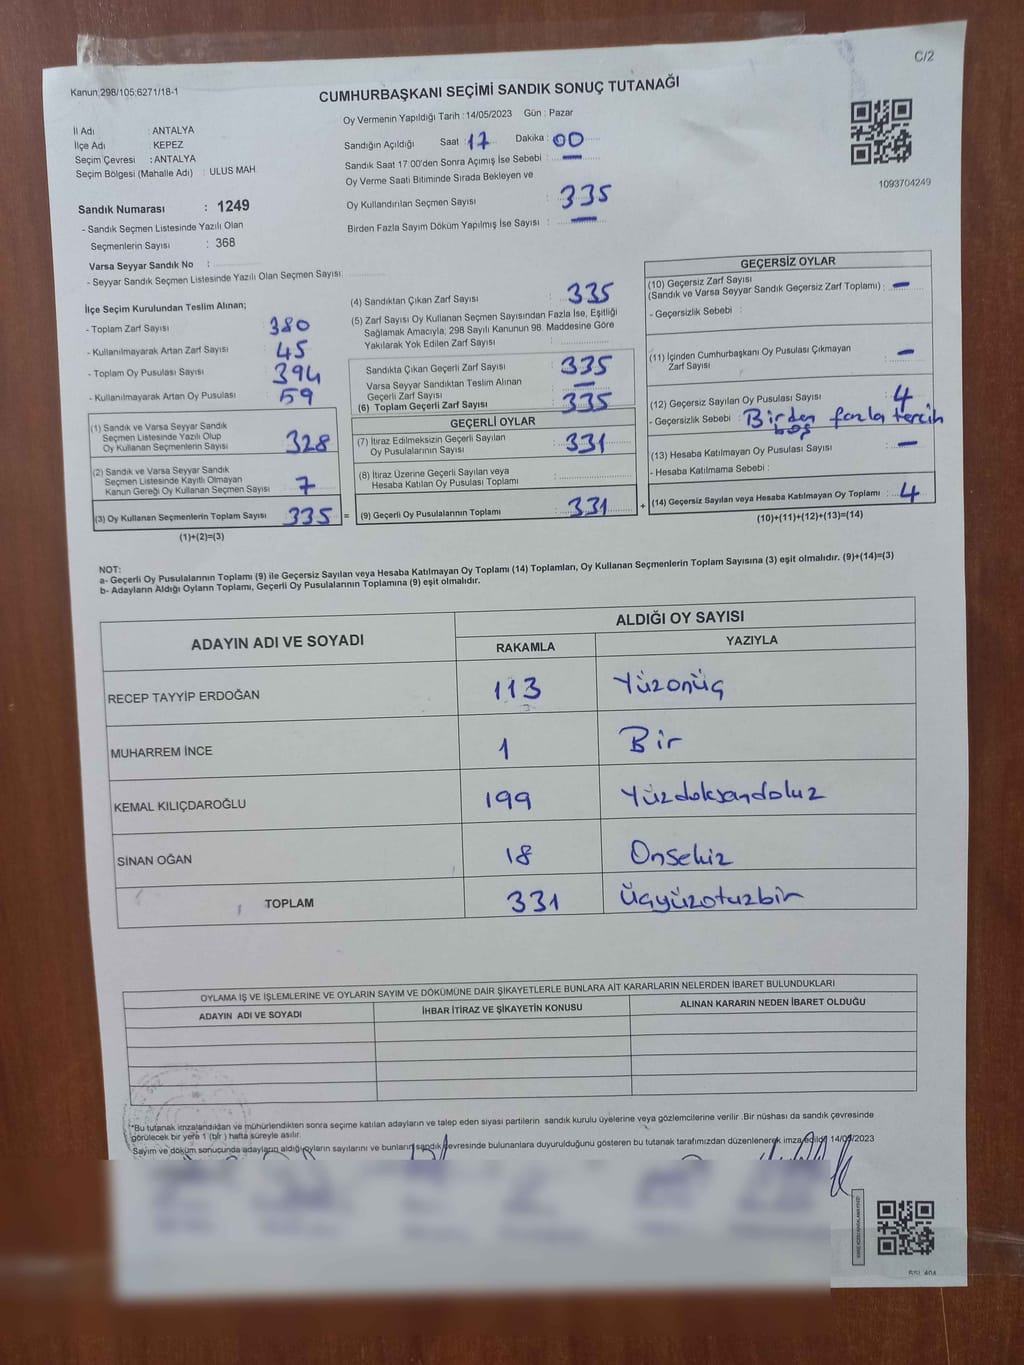 C/2
Kanun:298/105,6271/18-1
CUMHURBAŞKANI SEÇİMİ SANDIK SONUÇ TUTANAĞI
İl Adı : ANTALYA
İlçe Adı : KEPEZ
Seçim Çevresi : ANTALYA
Seçim Bölgesi (Mahalle Adı) : ULUS MAH
Oy Vermenin Yapıldığı Tarih : 14/05/2023 Gün : Pazar
Sandığın Açıldığı Saat : 17 Dakika : 00
Sandık Saat 17:00'den Sonra Açımış İse Sebebi : —
Oy Verme Saati Bitiminde Sırada Bekleyen ve
Oy Kullandırılan Seçmen Sayısı : 335
Birden Fazla Sayım Döküm Yapılmış İse Sayısı : —
1093704249
Sandık Numarası : 1249
- Sandık Seçmen Listesinde Yazılı Olan
Seçmenlerin Sayısı : 368
Varsa Seyyar Sandık No :
- Seyyar Sandık Seçmen Listesinde Yazılı Olan Seçmen Sayısı:
İlçe Seçim Kurulundan Teslim Alınan;
- Toplam Zarf Sayısı 380
- Kullanılmayarak Artan Zarf Sayısı 45
- Toplam Oy Pusulası Sayısı 394
- Kullanılmayarak Artan Oy Pusulası 59
(1) Sandık ve Varsa Seyyar Sandık
Seçmen Listesinde Yazılı Olup
Oy Kullanan Seçmenlerin Sayısı 328
(2) Sandık ve Varsa Seyyar Sandık
Seçmen Listesinde Kayıtlı Olmayan
Kanun Gereği Oy Kullanan Seçmen Sayısı 7
(3) Oy Kullanan Seçmenlerin Toplam Sayısı 335 =
(1)+(2)=(3)
(4) Sandıktan Çıkan Zarf Sayısı : 335
(5) Zarf Sayısı Oy Kullanan Seçmen Sayısından Fazla İse, Eşitliği
Sağlamak Amacıyla; 298 Sayılı Kanunun 98. Maddesine Göre
Yakılarak Yok Edilen Zarf Sayısı :
Sandıkta Çıkan Geçerli Zarf Sayısı : 335
Varsa Seyyar Sandıktan Teslim Alınan
Geçerli Zarf Sayısı : —
(6) Toplam Geçerli Zarf Sayısı : 335
GEÇERLİ OYLAR
(7) İtiraz Edilmeksizin Geçerli Sayılan
Oy Pusulalarının Sayısı : 331
(8) İtiraz Üzerine Geçerli Sayılan veya
Hesaba Katılan Oy Pusulası Toplamı :
(9) Geçerli Oy Pusulalarının Toplamı : 331 +
GEÇERSİZ OYLAR
(10) Geçersiz Zarf Sayısı
(Sandık ve Varsa Seyyar Sandık Geçersiz Zarf Toplamı) : —
- Geçersizlik Sebebi :
(11) İçinden Cumhurbaşkanı Oy Pusulası Çıkmayan
Zarf Sayısı : —
(12) Geçersiz Sayılan Oy Pusulası Sayısı : 4
- Geçersizlik Sebebi : Birden fazla tercih
boş
(13) Hesaba Katılmayan Oy Pusulası Sayısı : —
- Hesaba Katılmama Sebebi :
(14) Geçersiz Sayılan veya Hesaba Katılmayan Oy Toplamı : 4
(10)+(11)+(12)+(13)=(14)
NOT:
a- Geçerli Oy Pusulalarının Toplamı (9) ile Geçersiz Sayılan veya Hesaba Katılmayan Oy Toplamı (14) Toplamları, Oy Kullanan Seçmenlerin Toplam Sayısına (3) eşit olmalıdır. (9)+(14)=(3)
b- Adayların Aldığı Oyların Toplamı, Geçerli Oy Pusulalarının Toplamına (9) eşit olmalıdır.
ADAYIN ADI VE SOYADI ALDIĞI OY SAYISI
RAKAMLA YAZIYLA
RECEP TAYYİP ERDOĞAN 113 Yüzonüç
MUHARREM İNCE 1 Bir
KEMAL KILIÇDAROĞLU 199 Yüzdoksandoluz
SİNAN OĞAN 18 Onsekiz
TOPLAM 331 Üçyüzotuzbir
OYLAMA İŞ VE İŞLEMLERİNE VE OYLARIN SAYIM VE DÖKÜMÜNE DAİR ŞİKAYETLERLE BUNLARA AİT KARARLARIN NELERDEN İBARET BULUNDUKLARI
ADAYIN ADI VE SOYADI İHBAR İTİRAZ VE ŞİKAYETİN KONUSU ALINAN KARARIN NEDEN İBARET OLDUĞU
*Bu tutanak imzalandıktan ve mühürlendikten sonra seçime katılan adayların ve talep eden siyasi partilerin sandık kurulu üyelerine veya gözlemcilerine verilir .Bir nüshası da sandık çevresinde
görülecek bir yere 1 (bir ) hafta süreyle asılır.
Sayım ve döküm sonucunda adayların aldığı oyların sayılarını ve bunların sandık çevresinde bulunanlara duyurulduğunu gösteren bu tutanak tarafımızdan düzenlenerek imza edildi. 14/05/2023